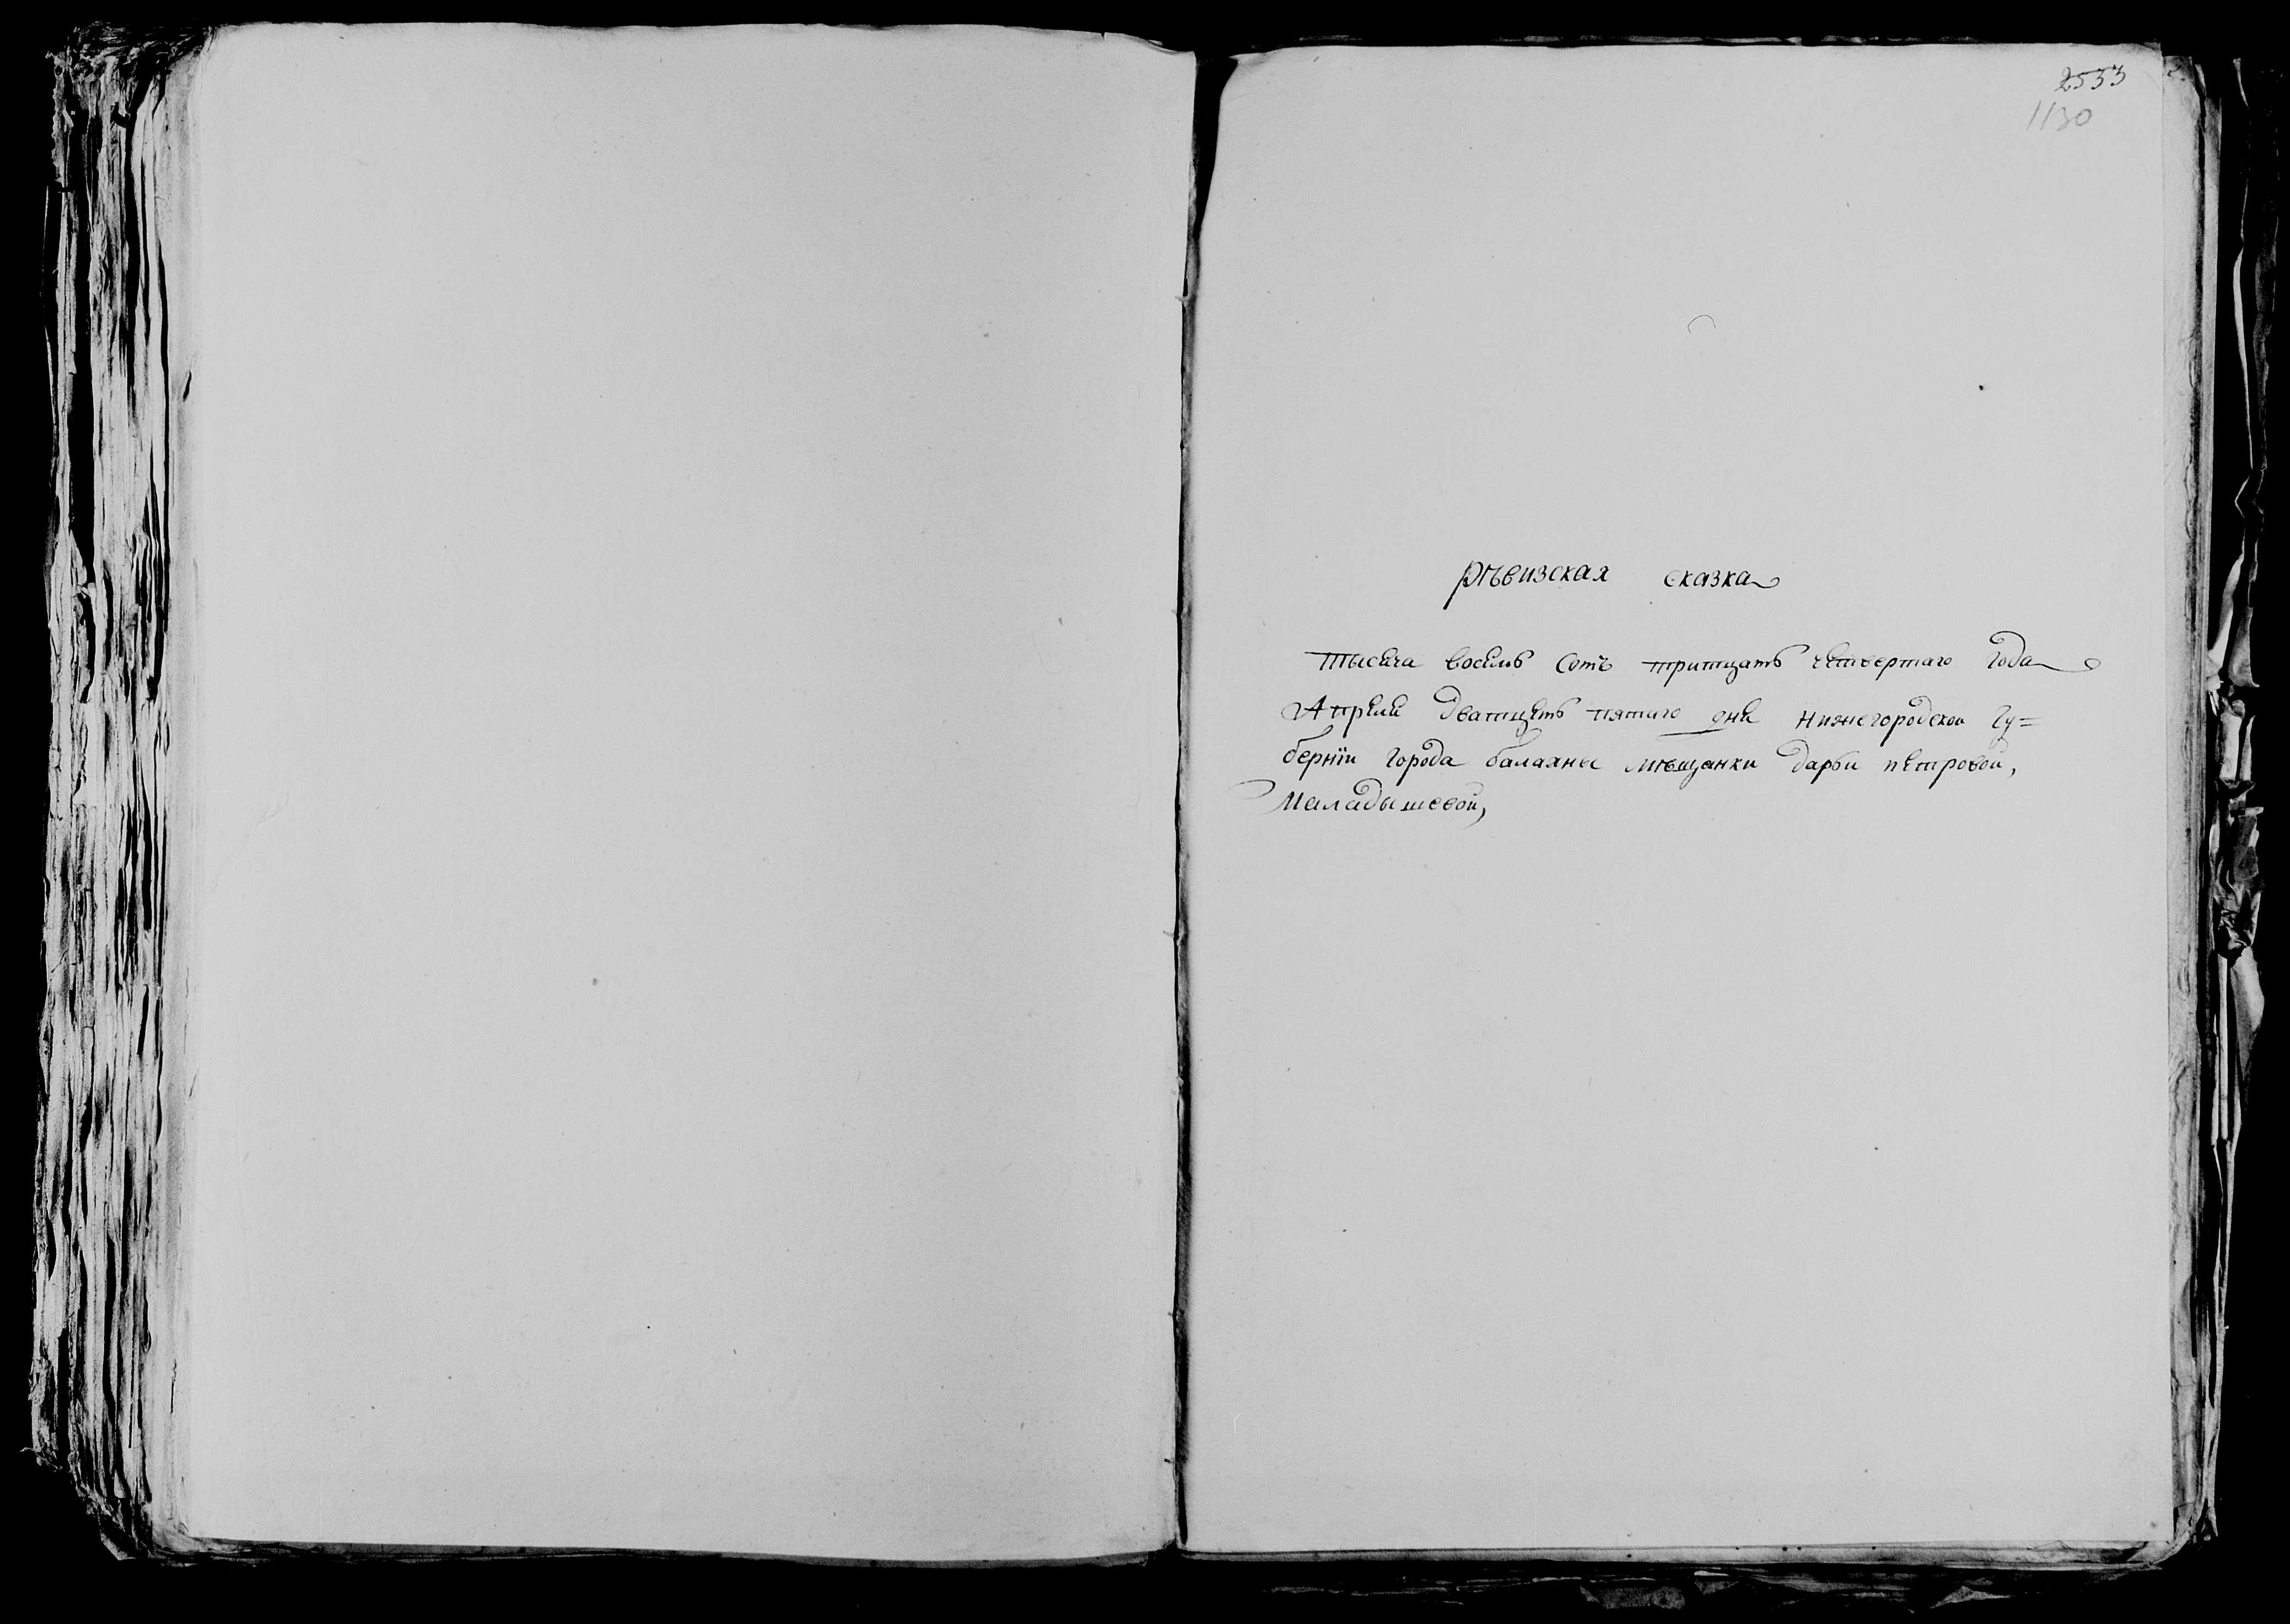 2533
1130
рѣвизская сказка
тысеча восемь сотъ тритцать четвертаго года
Апреля дватцеть пятаго дня нижегородской гу=
бернïи города балахны мѣщанки дарьи петровой,
Маладышевой,